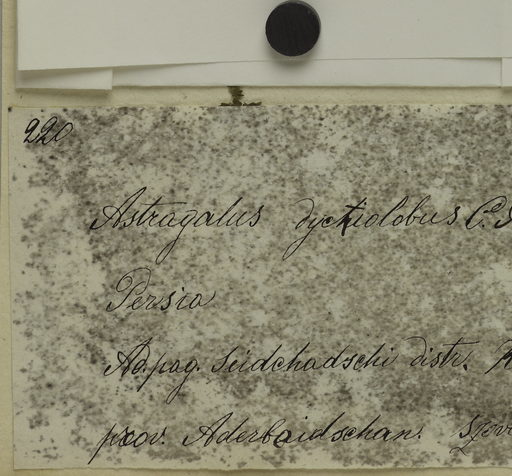 220
Astragalus dyctiolobus C.
Persia
Ad. pag. Seidchadschi distr.
prov. Aderbaidschan. Szov